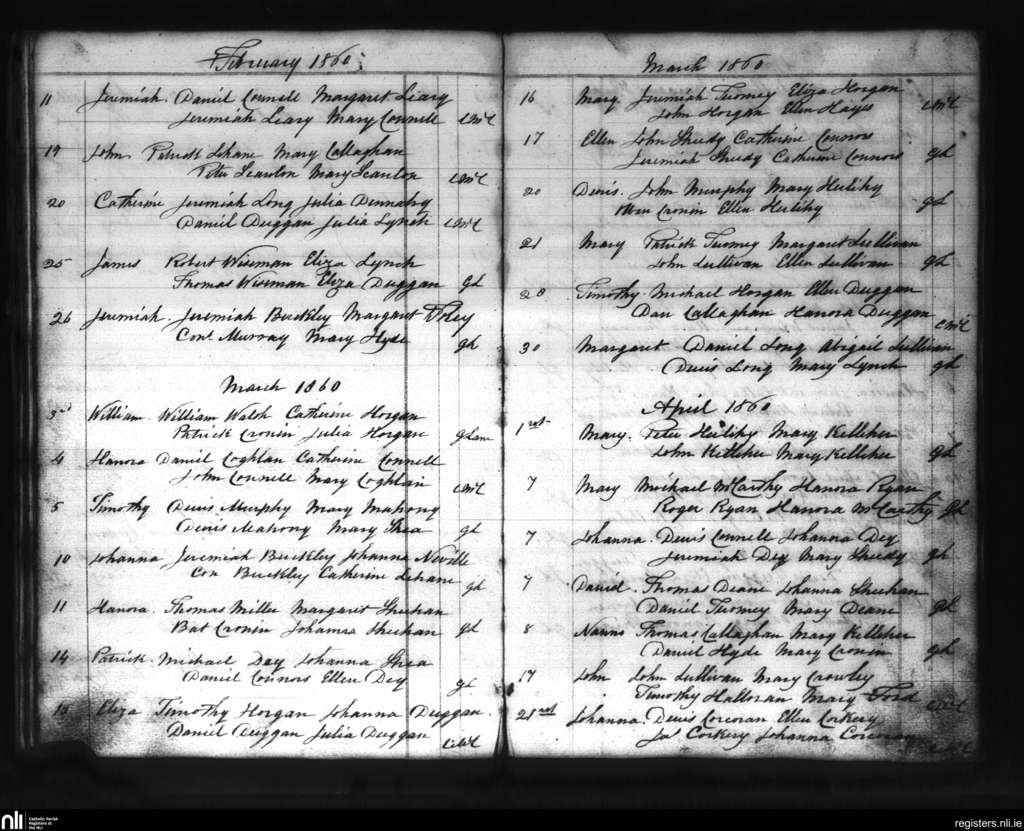 February 1860
11 Jeremiah. Daniel Connell Margaret Leary
Jeremiah Leary Mary Connell CMcC
19 John Patrick Lehane Mary Callaghan
Peter Scanlon Mary Scanlon CMcC
20 Catherine Jeremiah Long Julia Dennahy
Daniel Duggan Julia Lynch CMcC
25 James Robert Wiseman Eliza Lynch
Thomas Wiseman Eliza Duggan gL
26 Jeremiah. Jeremiah Buckley Margaret Foley
Con. Murray Mary Hyde gL
March 1860
3rd William. William Walsh Catherine Horgan
Patrick Cronin Julia Horgan
4 Hanora Daniel Coghlan Catherine Connell
John Connell Mary Coghlan CMcC
5 Timothy Denis Murphy Mary Mahony
Denis Mahony Mary Shea gL
10 Johanna Jeremiah Buckley Johanna Neville
Con Buckley Catherine Lehane gL
11 Hanora. Thomas Miller Margaret Sheehan
Bat Cronin Johanna Sheehan gL
14 Patrick. Michael Dey Johanna Shea
Daniel Connors Ellen Dey gL
15 Eliza Timothy Horgan Johanna Duggan.
Daniel Duggan Julia Duggan CMcC
March 1860
16 Mary. Jeremiah Twomey Eliza Horgan
John Horgan Ellen Hayes CMcC
17 Ellen John Sheedy Catherine Connors
Jeremiah Sheedy Catherine Connors gL
20 Denis. John Murphy Mary Heilihy
Wm Cronin Ellen Heilihy gL
21 Mary Patrick Twomey Margaret Sullivan
John Sullivan Ellen Sullivan gL
28 Timothy. Michael Horgan Ellen Duggan
Dan Callaghan Hanora Duggan CMcC
30 Margaret Daniel Long Abigail Sullivan
Denis Long Mary Lynch gL
April 1860
1rst Mary. Peter Heilihy Mary Kelleher
John Kelleher Mary Kelleher gL
7 Mary Michael McCarthy Hanora Ryan
Roger Ryan Hanora McCarthy gL
7 Johanna. Denis Connell Johanna Dey
Jeremiah Dey Mary Sheedy gL
7 David. Thomas Deane Johanna Sheehan
Daniel Twomey Mary Deane gL
8 Nanno Thomas Callaghan Mary Kelleher
Daniel Hyde Mary Cronin gL
17 John John Sullivan Mary Crowley
Timothy Halloran Mary Ford CMcC
21rst Johanna. Denis Corcoran Ellen Corkery
Jas Corkery Johanna Corcoran CMcC
nli Catholic Parish
Registers at
the NLI
registers.nli.ie